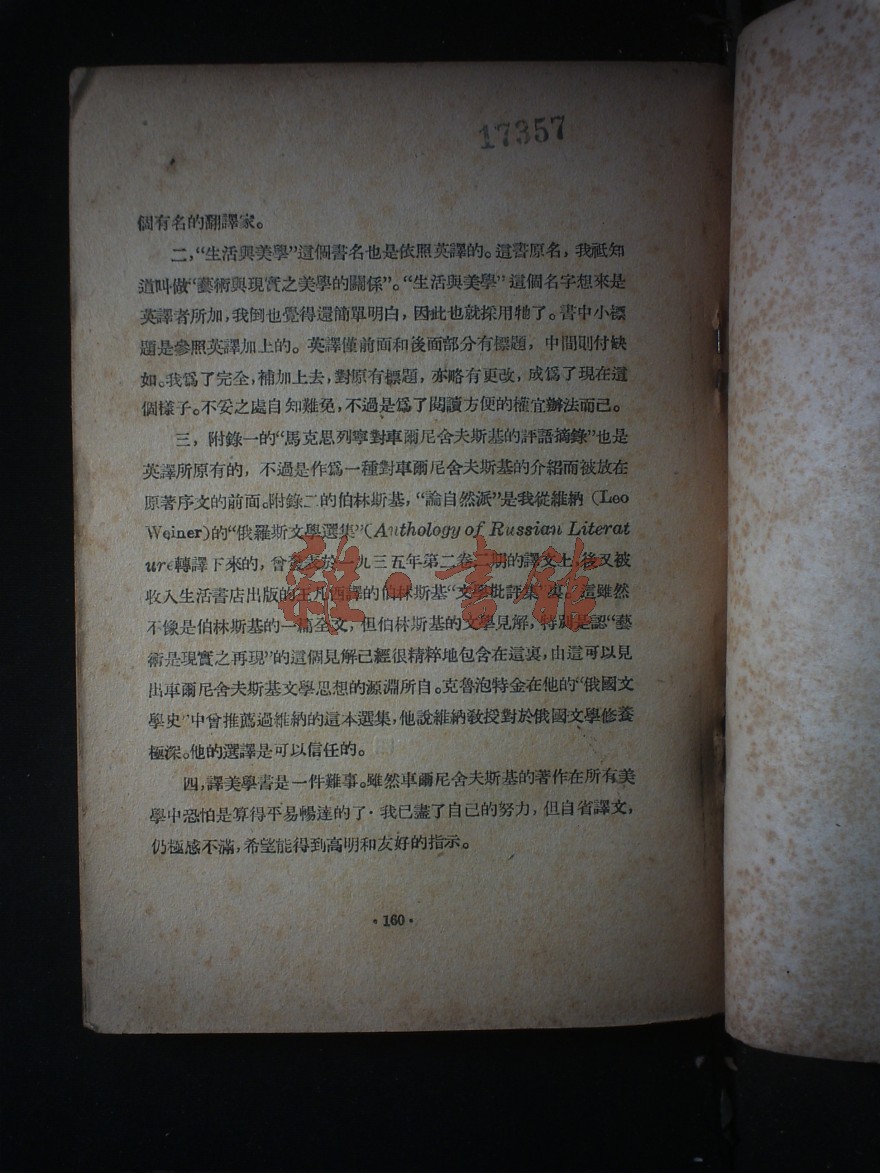 17357
個有名的翻譯家。
二，“生活與美學”這個書名也是依照英譯的。這書原名，我祇知
道叫做“藝術與現實之美學的關係”。“生活與美學”這個名字想來是
英譯者所加，我倒也覺得還簡單明白，因此也就採用牠了。書中小標
題是參照英譯加上的。英譯僅前面和後面部分有標題，中間則付缺
如。我爲了完全，補加上去，對原有標題，亦略有更改，成爲了現在這
個樣子。不妥之處自知難免，不過是爲了閱讀方便的權宜辦法而已。
三，附錄一的“馬克思列寧對車爾尼舍夫斯基的評語摘錄”也是
英譯所原有的，不過是作爲一種對車爾尼舍夫斯基的介紹而被放在
原著序文的前面。附錄二的伯林斯基，“論自然派”是我從維納（Leo
Weiner)的“俄羅斯文學選集”(Anthology of Russian Literat
ure轉譯下來的，曾發表於一九三五年第二卷二期的譯文上，後又被
收入生活書店出版的王凡西譯的伯林斯基“文學批評集”裏。這雖然
不像是伯林斯基的一篇全文，但伯林斯基的文學見解，特別是認“藝
術是現實之再現”的這個見解已經很精粹地包含在這裏，由這可以見
出車爾尼舍夫斯基文學思想的源淵所自。克魯泡特金在他的“俄國文
學史”中曾推薦過維納的這本選集，他說維納敎授對於俄國文學修養
極深。他的選譯是可以信任的。
四，譯美學書是一件難事。雖然車爾尼舍夫斯基的著作在所有美
學中恐怕是算得平易暢達的了·我已盡了自己的努力，但自省譯文，
仍極感不滿，希望能得到高明和友好的指示。
·160·
雜·書館